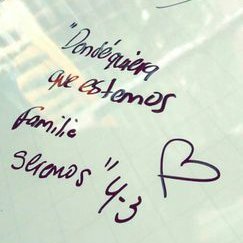 "Dondequiera
que estemos
familia
seremos" 4-3